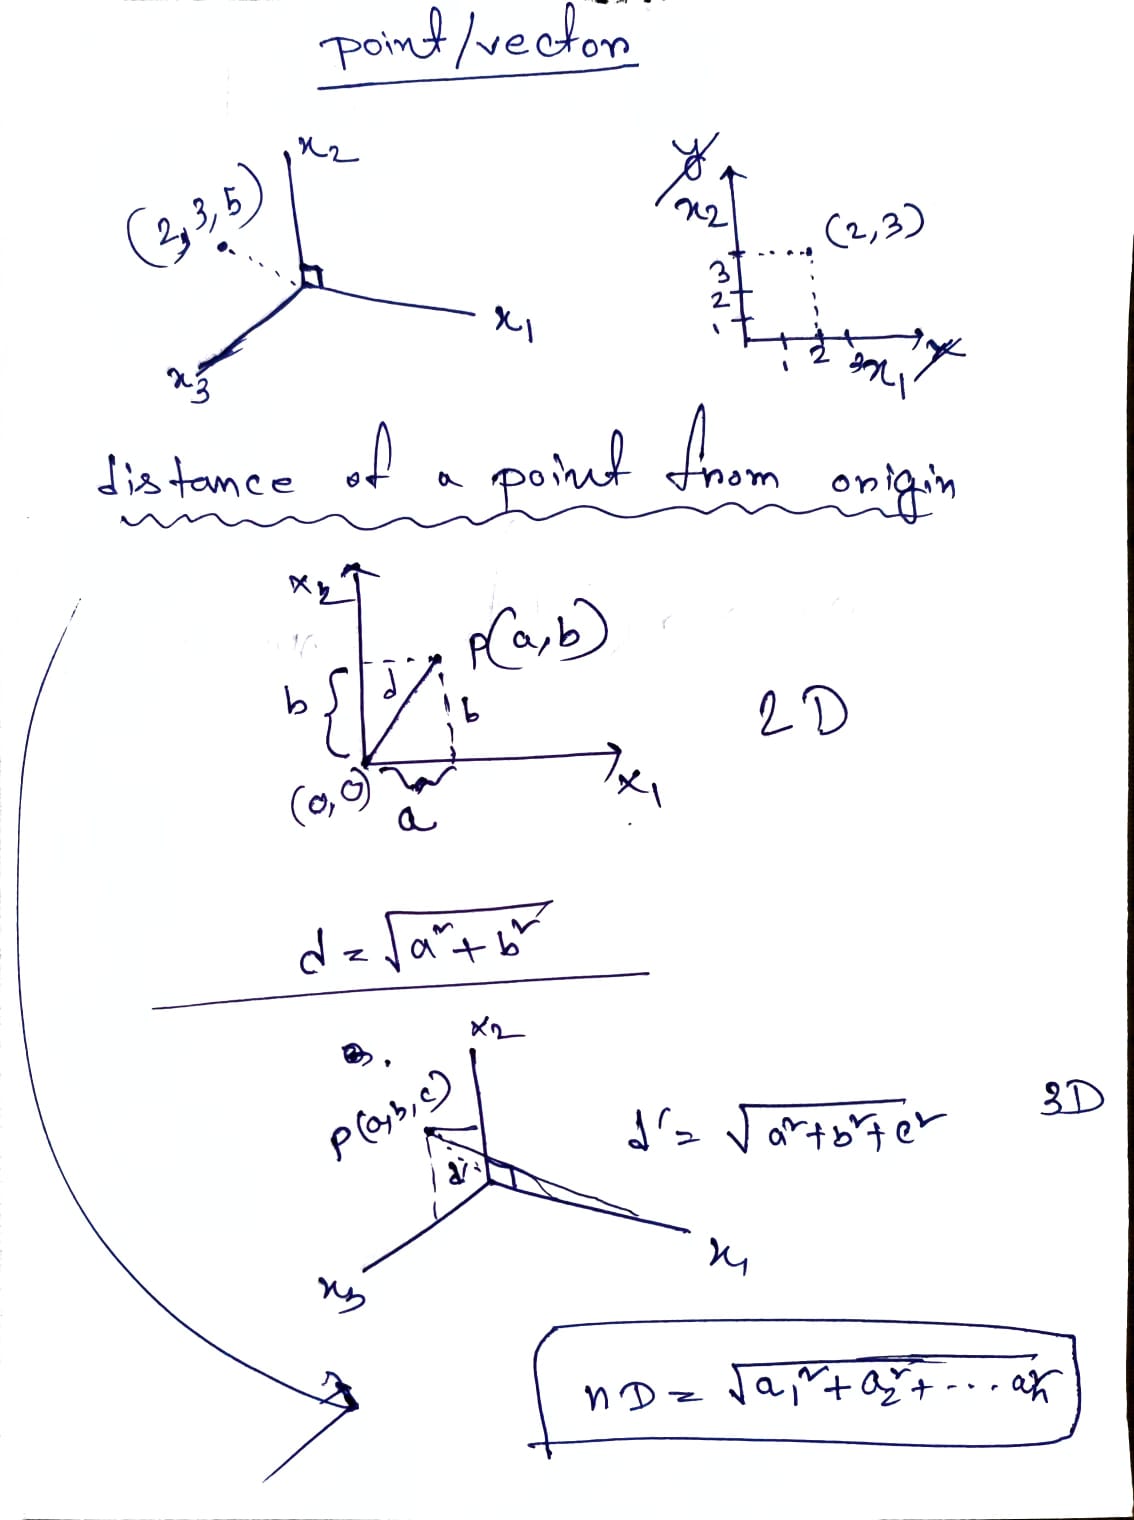 point/vector
x2
(2,3,5)
x1
x3
y
x2
(2,3)
3
2
1
1 2 3 x1 x
distance of a point from origin
x2
p(a,b)
b d b
2D
(0,0) a x1
d = √a²+b²
x2
p(a,b,c)
d'
d' = √a²+b²+c²
3D
x1
x3
nD = √a1²+a2²+...an²